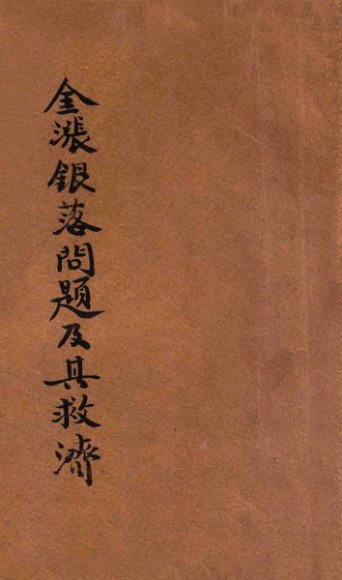 金漲銀落問題及其救濟